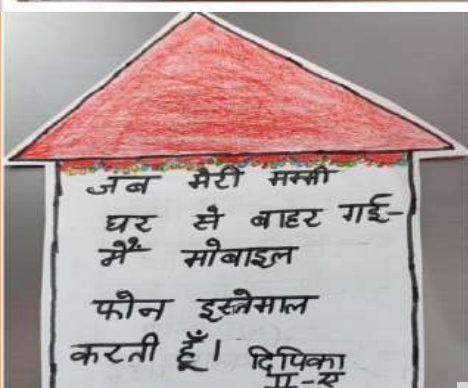 जब मेरी मम्मी
घर से बाहर गई-
मैं मोबाइल
फोन इस्तेमाल
करती हूँ।
दिपिका